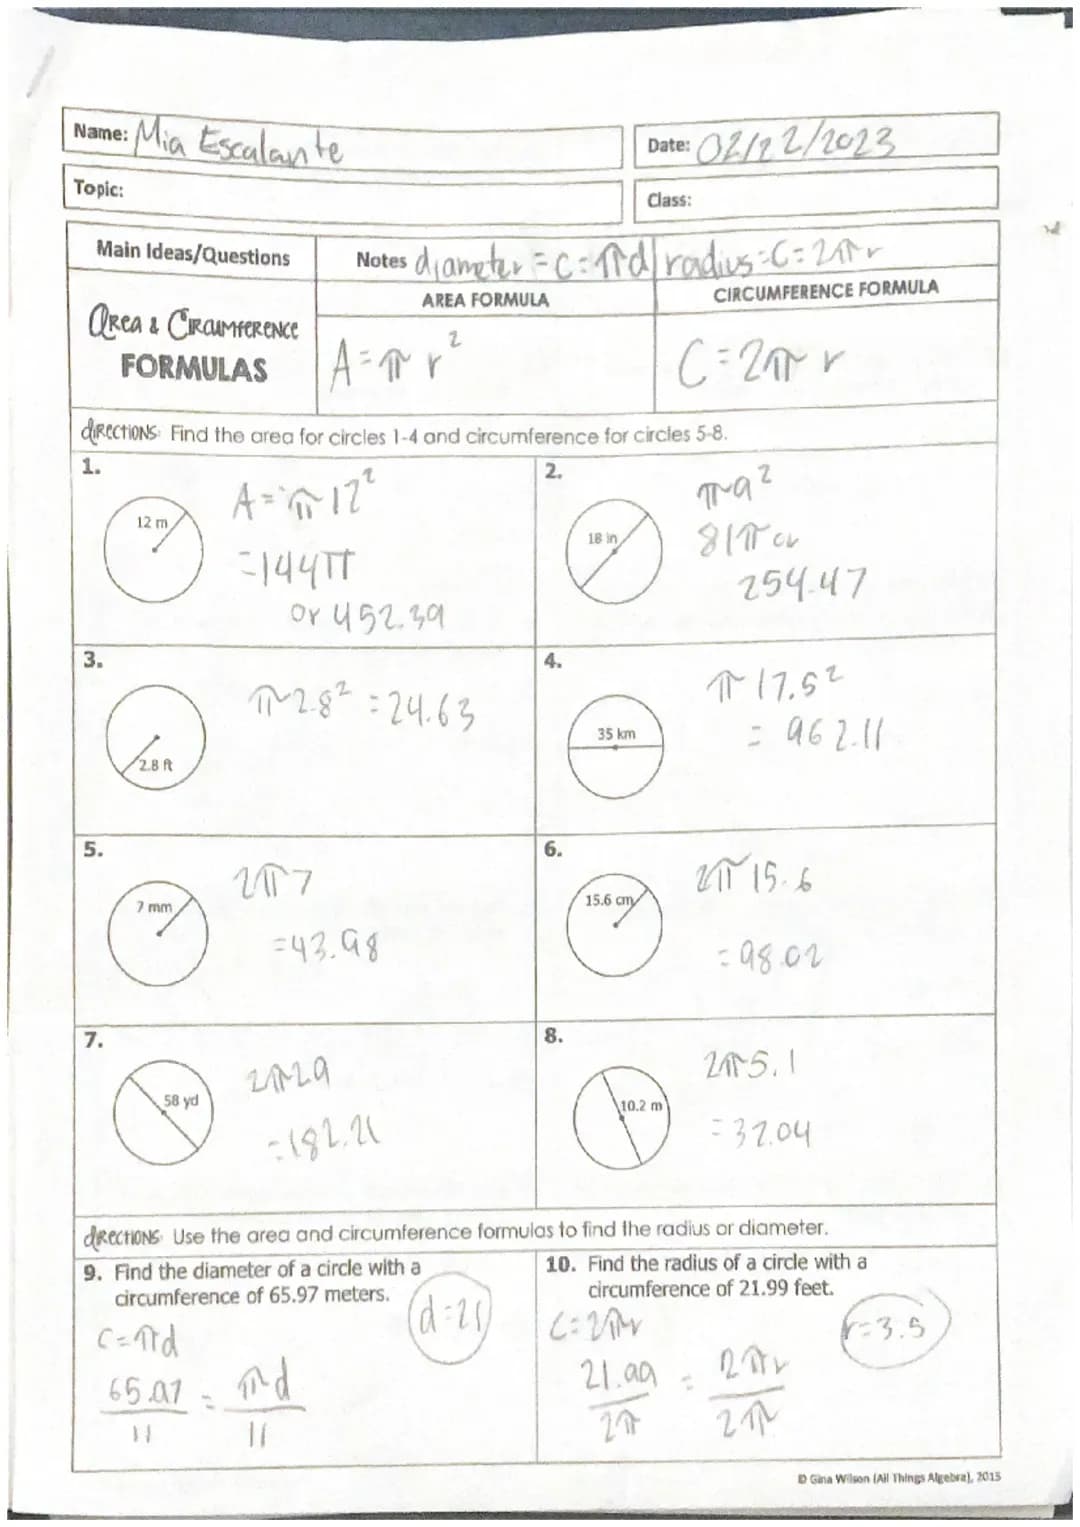 Name: Mia Escalante
Date: 02/22/2023
Topic:
Class:
Main Ideas/Questions
Notes diameter = C=πd | radius = C=2πr
AREA & CIRCUMFERENCE
FORMULAS
AREA FORMULA
CIRCUMFERENCE FORMULA
A=πr²
C=2πr
DIRECTIONS: Find the area for circles 1-4 and circumference for circles 5-8.
1.
12 m
A=π12²
=144π
or 452.39
2.
18 in
π9²
81π or
254.47
3.
2.8 ft
π2.8² =24.63
4.
35 km
π17.5²
= 962.11
5.
7 mm
2π7
=43.98
6.
15.6 cm
2π15.6
=98.02
7.
58 yd
2π29
=182.21
8.
10.2 m
2π5.1
=32.04
DIRECTIONS: Use the area and circumference formulas to find the radius or diameter.
9. Find the diameter of a circle with a
circumference of 65.97 meters.
d=21
C=πd
65.97 = πd
π π
10. Find the radius of a circle with a
circumference of 21.99 feet.
r=3.5
C=2πr
21.99 = 2πr
2π 2π
© Gina Wilson (All Things Algebra), 2015